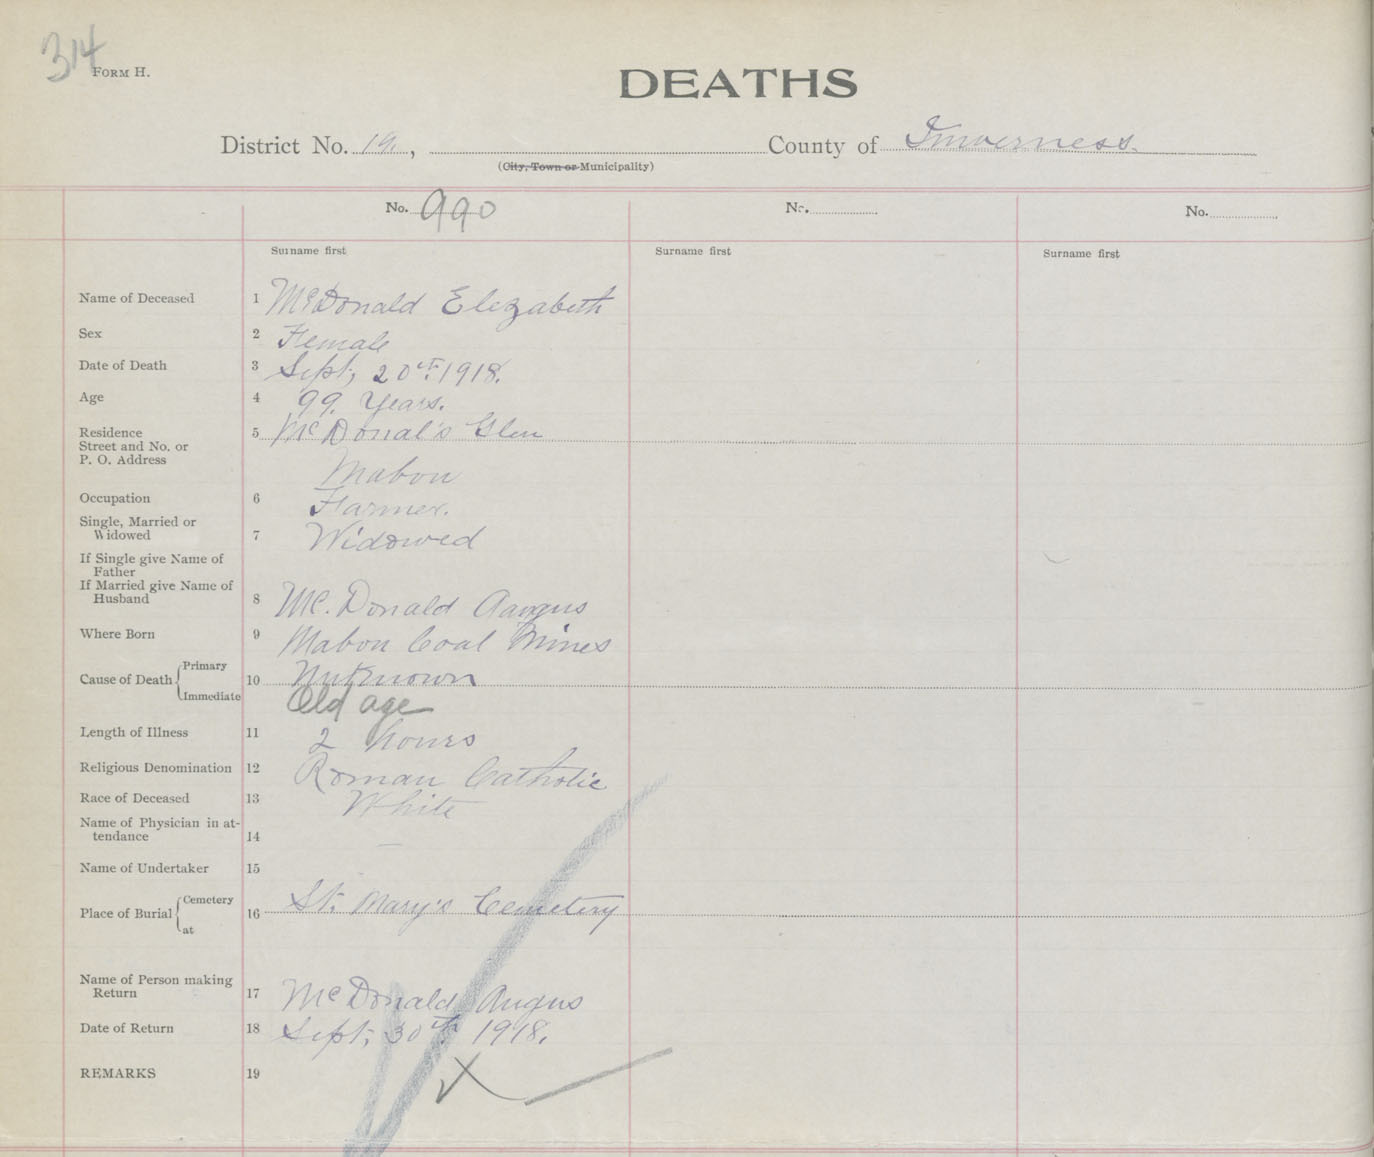 314
FORM H.
DEATHS
District No. 19, County of Inverness.
(City, Town or Municipality)
No. 990 No. No.
Surname first Surname first Surname first
Name of Deceased 1 McDonald Elezabeth
Sex 2 Female
Date of Death 3 Sept, 20th 1918.
Age 4 99. Years.
Residence 5 McDonal's Glen
Street and No. or
P. O. Address
Mabou
Occupation 6 Farmer.
Single, Married or
Widowed 7 Widowed
If Single give Name of
Father
If Married give Name of
Husband 8 Mc. Donald Aangus
Where Born 9 Mabou Coal Mines
Cause of Death Primary 10 Unknown
Immediate Old age
Length of Illness 11 2 hours
Religious Denomination 12 Roman Catholic
Race of Deceased 13 White
Name of Physician in at-
tendance 14 —
Name of Undertaker 15
Place of Burial Cemetery 16 St. Mary's Cemetery
at
Name of Person making
Return 17 McDonald Angus
Date of Return 18 Sept, 30th. 1918.
REMARKS 19